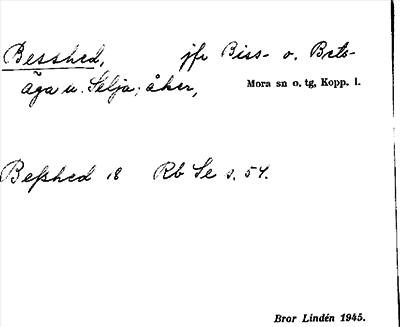 Besshed, jfr Biss- o. Bets-
äga u. Selja; åker, Mora sn o. tg, Kopp. l.
Beſshed 18 Rb Se s. 54.
Bror Lindén 1945.